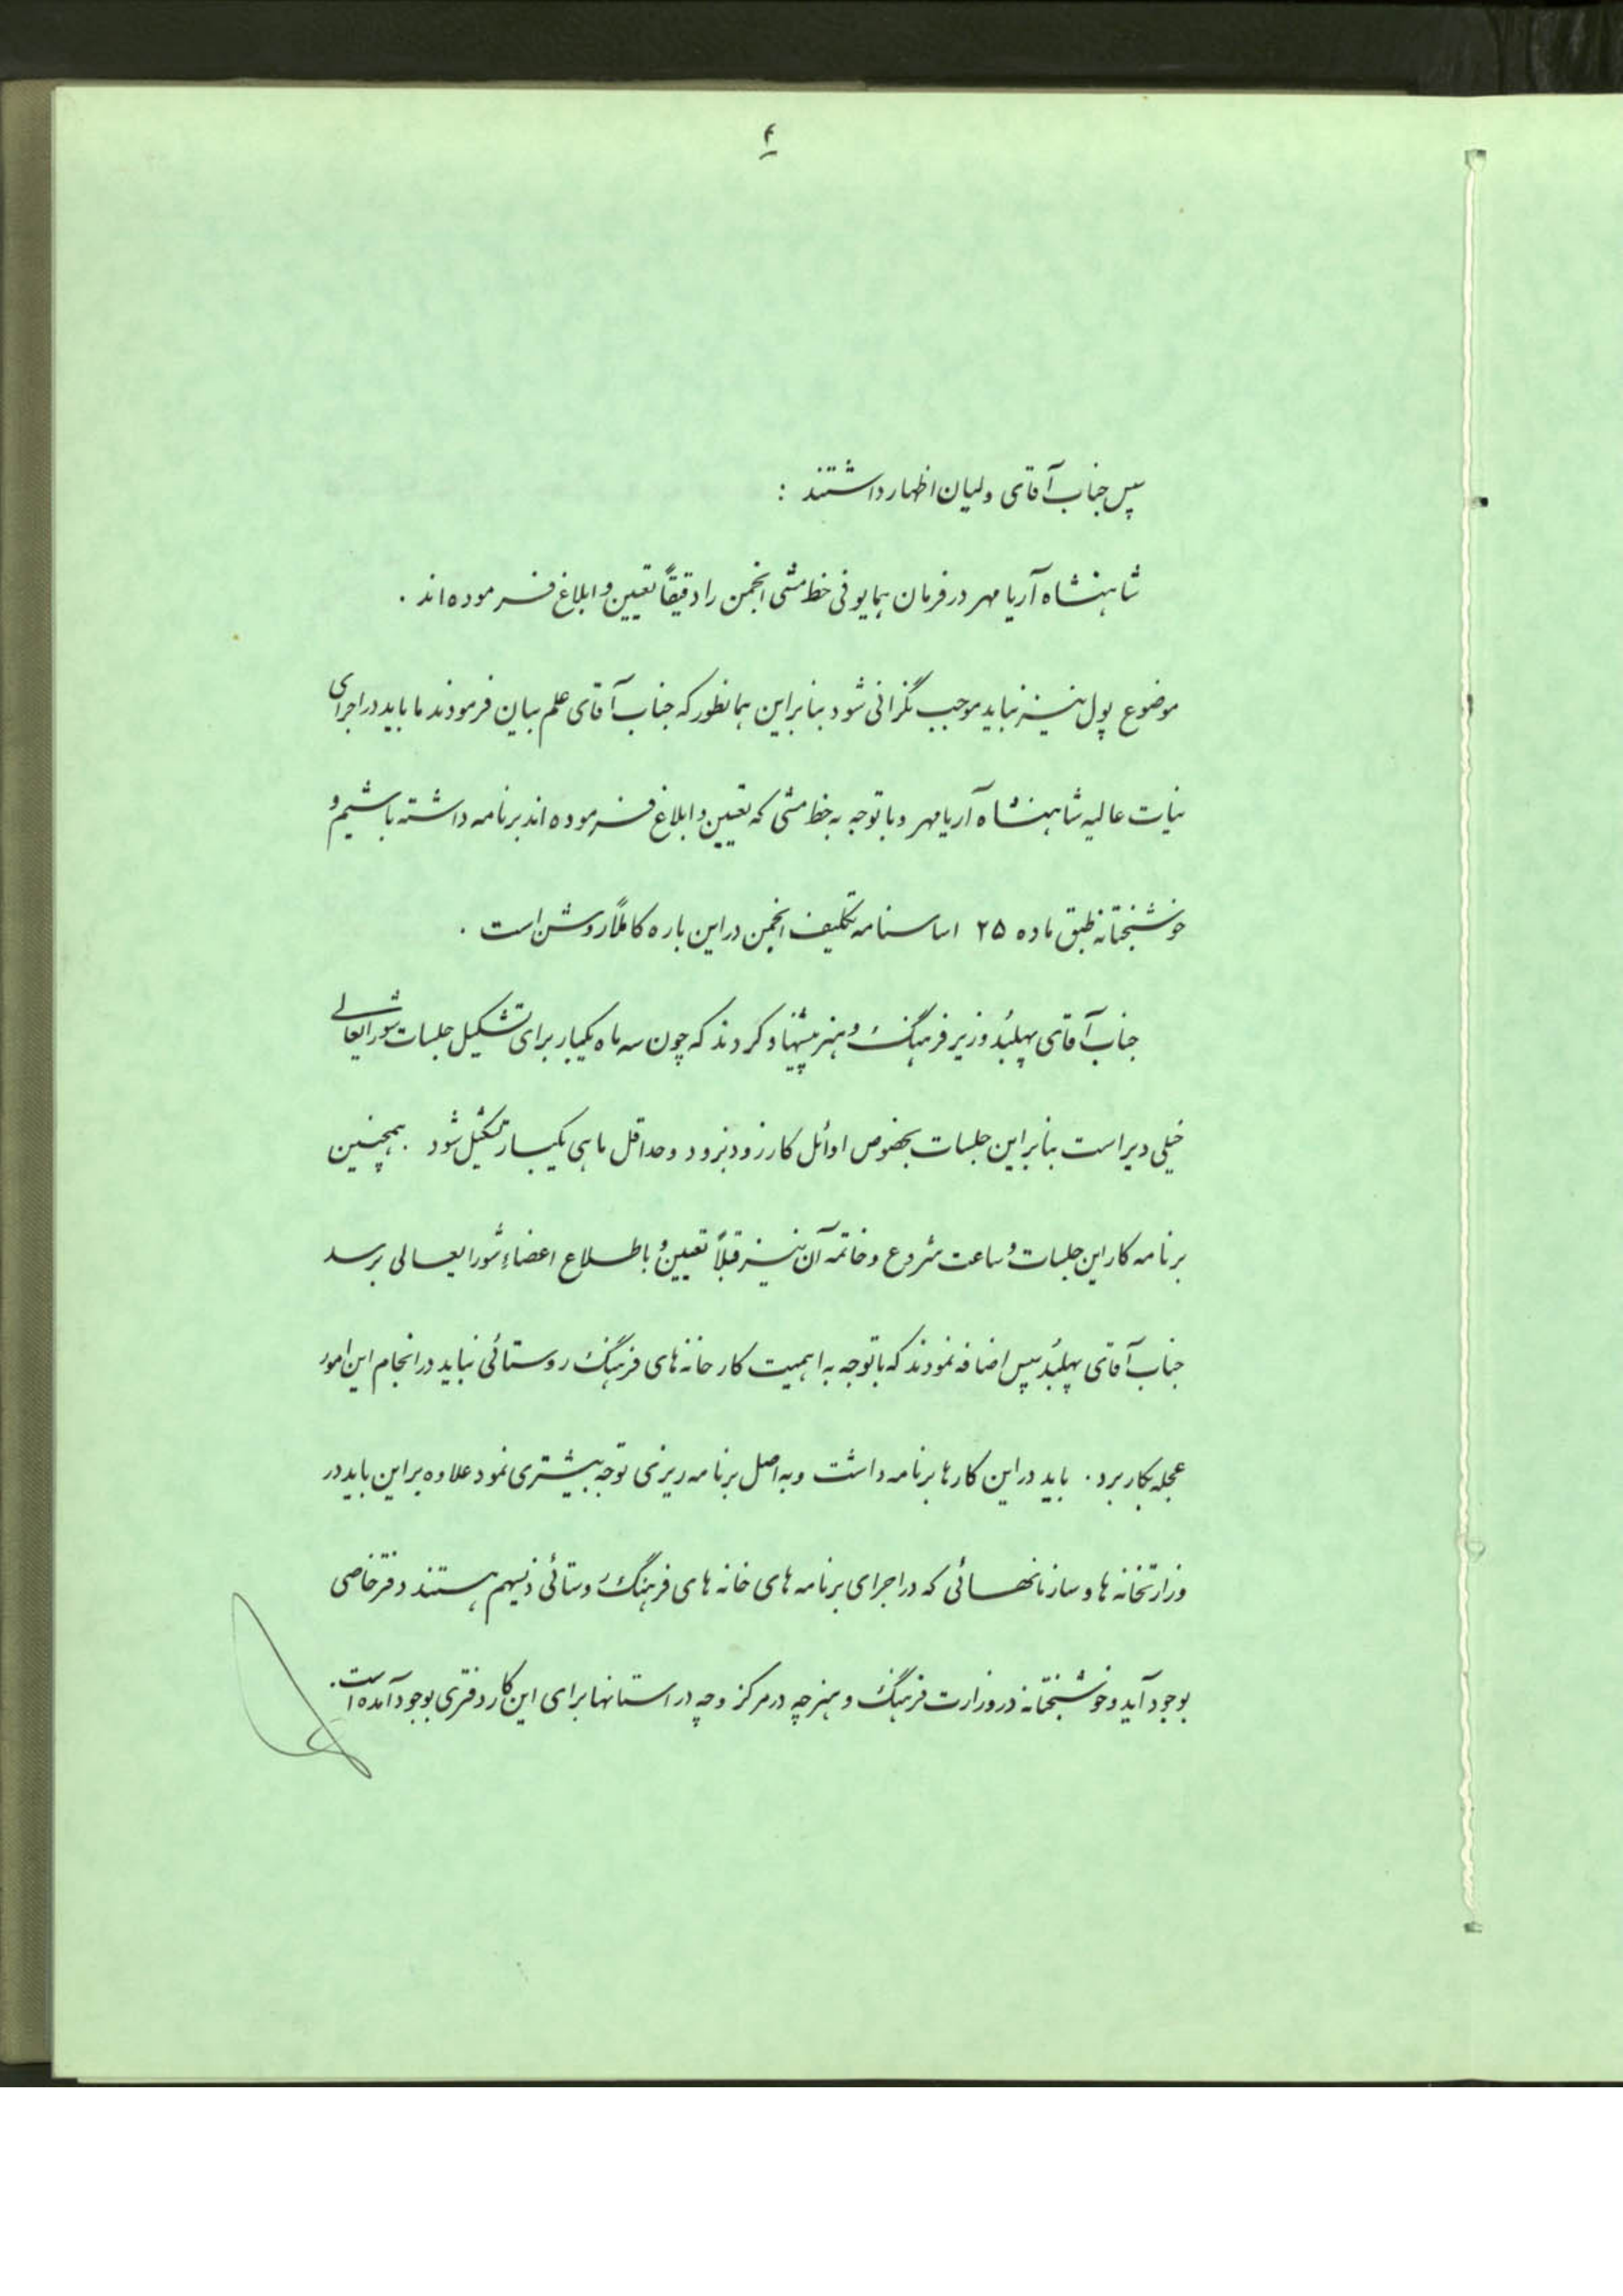 ۴
سپس جناب آقای ولیان اظهار داشتند :
شاهنشاه آریامهر در فرمان همایونی خط مشی انجمن را دقیقاً تعیین و ابلاغ فرموده‌اند .
موضوع پول نیز نباید موجب نگرانی شود بنابراین همانطور که جناب آقای علم بیان فرمودند ما باید در اجرای
نیات عالیه شاهنشاه آریامهر و با توجه به خط مشی که تعیین و ابلاغ فرموده‌اند برنامه داشته باشیم و
خوشبختانه طبق ماده ۲۵ اساسنامه تکلیف انجمن در این باره کاملاً روشن است .
جناب آقای پهلبد وزیر فرهنگ و هنر پیشنهاد کردند که چون سه ماه یکبار برای تشکیل جلسات شورایعالی
خیلی دیر است بنابراین جلسات بخصوص اوائل کار زود بزود و حداقل ماهی یکبار تشکیل شود . همچنین
برنامه کار این جلسات و ساعت شروع و خاتمه آن نیز قبلاً تعیین و باطلاع اعضاء شورایعالی برسد
جناب آقای پهلبد سپس اضافه نمودند که با توجه به اهمیت کار خانه‌های فرهنگ روستائی نباید در انجام این امور
عجله بکار برد . باید در این کارها برنامه داشت و به اصل برنامه ریزی توجه بیشتری نمود علاوه بر این باید در
وزارتخانه ها و سازمانهائی که در اجرای برنامه های خانه های فرهنگ روستائی ذیسهم هستند دفتر خاصی
بوجود آید و خوشبختانه در وزارت فرهنگ و هنر چه در مرکز و چه در استانها برای این کار دفتری بوجود آمده است .